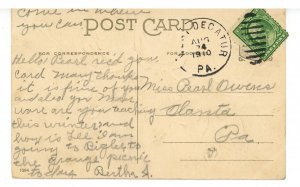 come
you can
POST CARD
FOR CORRESPONDENCE
Hello Pearl rec'd your
card many thanks
it is fine of you
and Lee you
are you teaching
this winter and
how is Lee I am
going to Bigler to
the Grange picnic
to day Bertha
DECATUR
AUG
24
1910
PA.
Miss Pearl Owens
Olanta
Pa